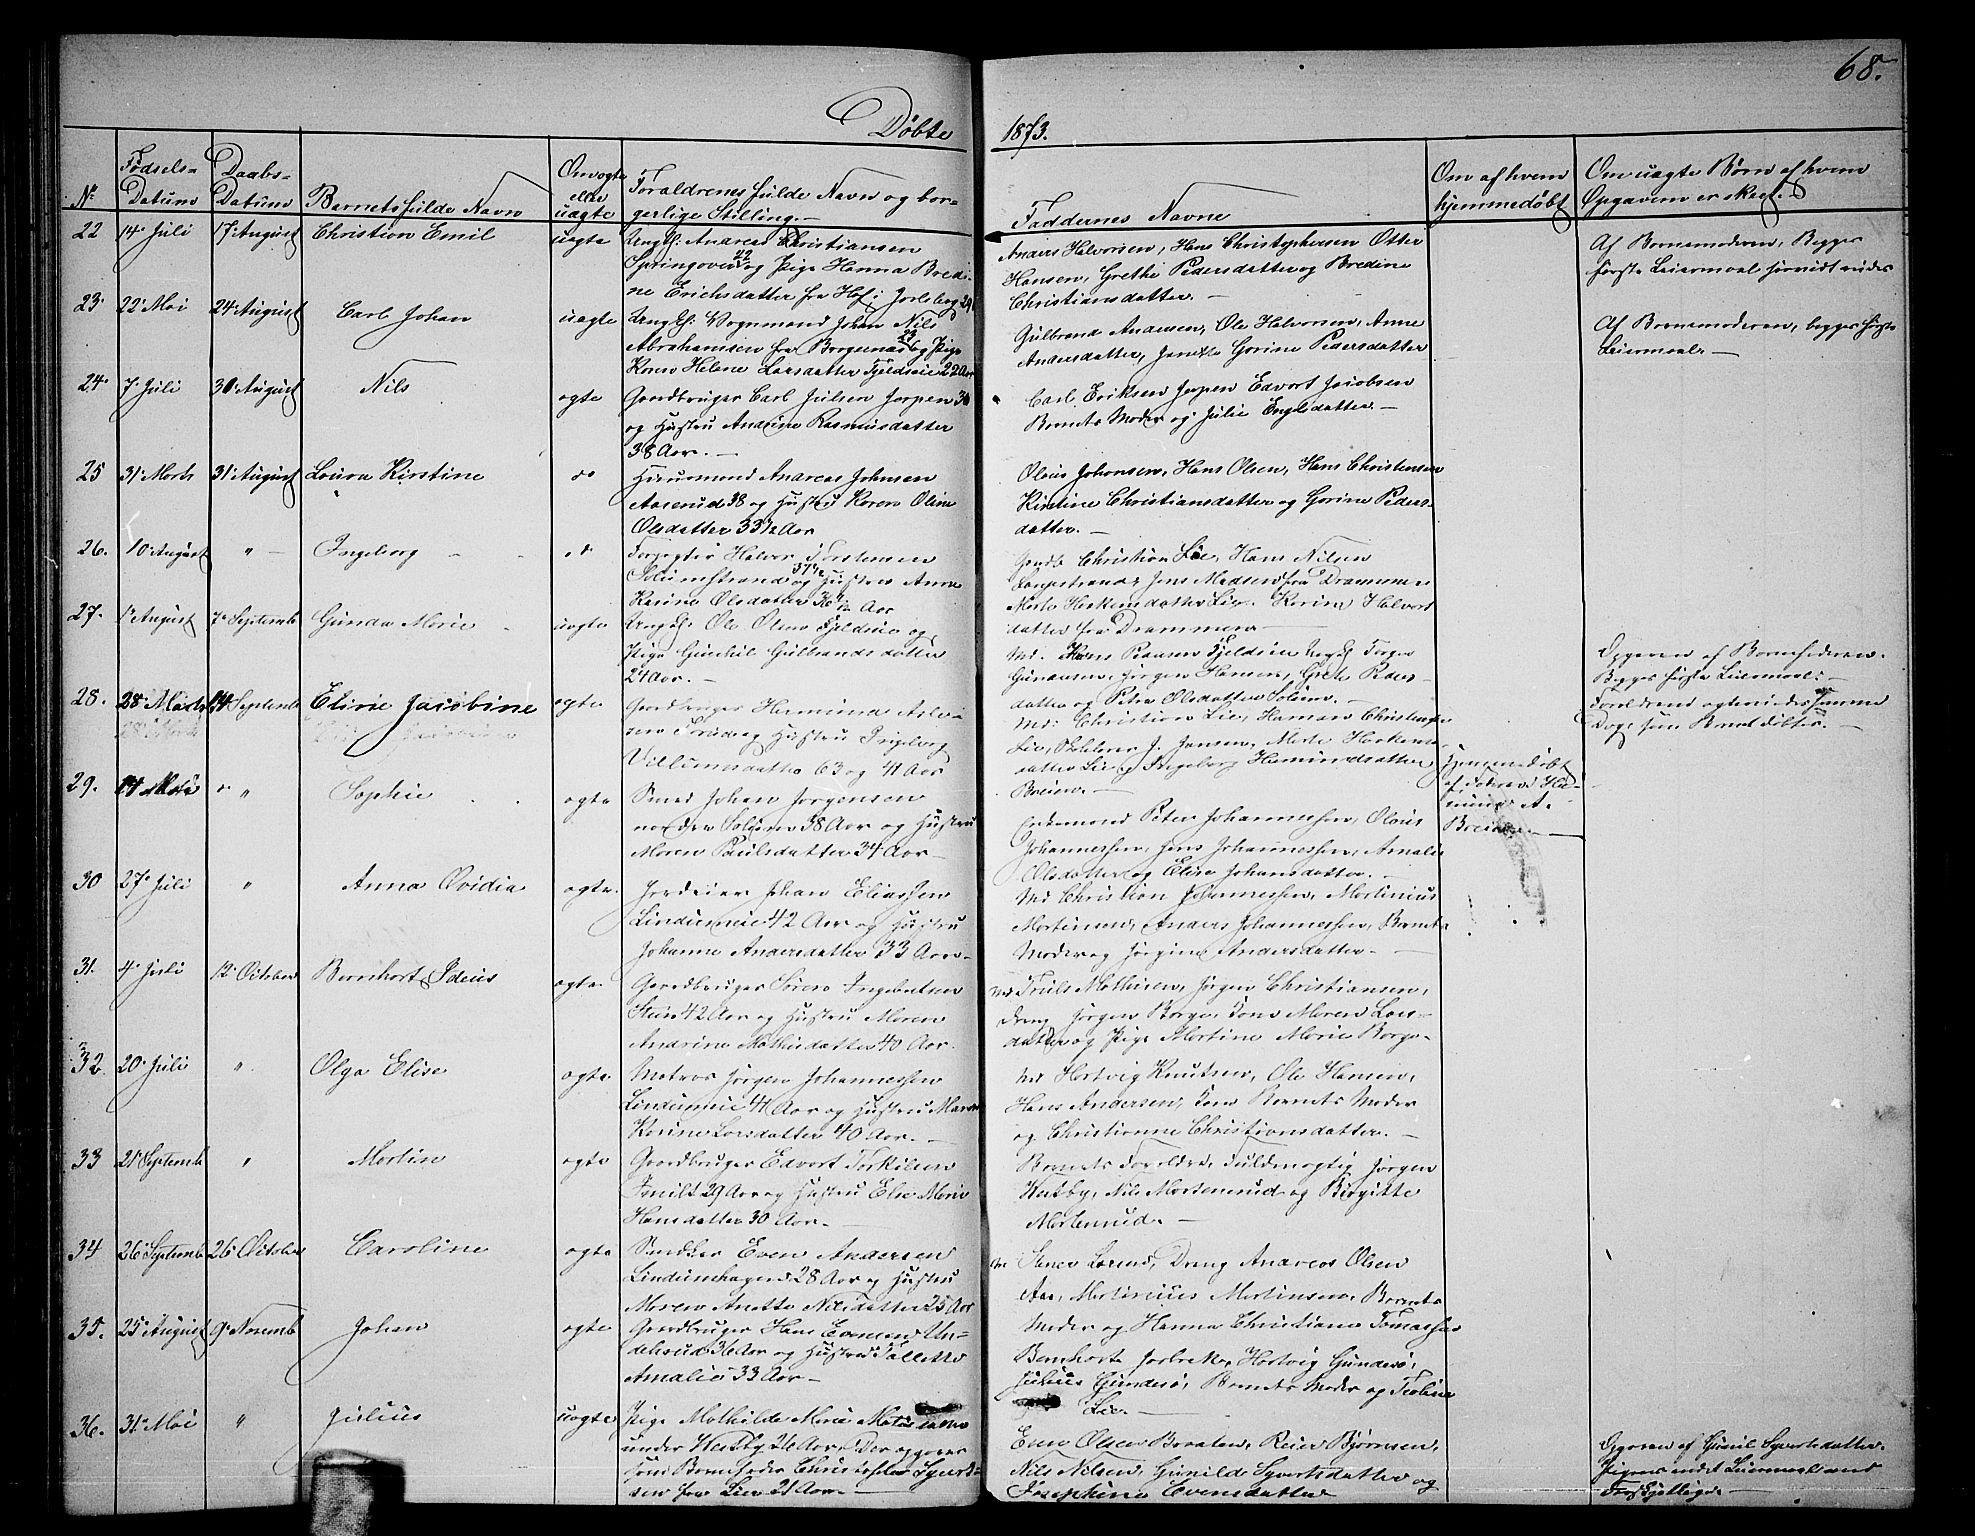 68.
Døbte 1873.
No
Fødsels-
Datum
Daabs-
Datum
Barnets fulde Navn
Om ægte
eller
uægte
Forældrenes fulde Navn og bor-
gerlige Stilling.
Faddernes Navne
Om af hvem
hjemmedøbt
Om uægte Børn af hvem
Opgaven er skeet.
22 14 Juli 17 August Christian Emil uægte Ungk. Andreas Christiansen
Springoven 22 og Pige Hanna Bredi-
ne Erichsdatter fra Hof i Jarlsberg 24
Anders Halvorsen, Hans Christophersen Otter
Hansen, Grethe Pedersdatter og Bredine
Christiansdatter. —
Af Barnemoderen, Begges
første Leiermaal
23 22 Mai 24 August Carl Johan uægte Ungk. Vognmand Johan Nils
Abrahamsen fra Borgernæs og Pige
Karen Helene Larsdatter Fjeldseie 22 Aar
Gulbrand Andersen, Ole Halvorsen, Anne
Andersdatter, Gorine Pedersdatter
Af Barnemoderen, begges første
Leiermaal. —
24 7 Juli 30 August Nils ægte Gaardbruger Carl Julsen Jerpen 30
og Hustru Andrine Rasmusdatter
38 Aar. —
Carl Eriksen Jerpen Edvort Jacobsen
Barnets Moder og Julie Engelsdatter. —
25 31 Marts 31 August Laura Kirstine do Huusmand Andreas Johnsen
Aaserud 38 og Hustru Karen Oline
Olsdatter 33½ Aar
Olaus Johansen, Hans Olsen, Hans Christensen
Kirstine Christiansdatter og Gorine Peders-
datter. —
26. 10 August " — Ingeborg do Halvor Torstensen
Solumstrand 37½ og Hustru Anne
Karine Olsdatter 36½ Aar
Christian Lie, Hans Nilsen
Jens Madsen fra Drammen
Lie. Karine Halvors
datter fra Drammen —
27. 1 August 7 Septemb Gunda Marie uægte Ungk. Ole Olsen Fjeldseie og
Pige Gunhil Gulbrandsdatter
24 Aar. —
Hans Pedersen Fjeldseie Ungk. Torger
Gundersen, Jørgen Hansen, Grete Peders-
datter og Petra Olsdatter Solum. —
Opgaven af Barnefaderen.
Begges første Leiermaal.
Forældrene samme
Dag som Barnet døbtes. —
28. 28 Marts 14 Septemb Elivie Jacobine ægte Gaardbruger Hermund Asle-
sen og Hustru Ingeborg
Villumsdatter 63 og 41 Aar
Md. Christian Lie, Herman Christensen
Lie, Skolelærer J. Jansen, Marte Haskens-
datter Lie og Ingeborg Hermundsdatter
Breien. —
Hjemmedøbt
af Faderen He-
mund A.
Breien. —
29. 14 Mai " Sophie ægte Smed Johan Jørgensen
nordre Solum 38 Aar og Hustru
Maren Paulsdatter 34 Aar —
Enkemand Peter Johannessen, Olaus
Johannessen, Jens Johannessen, Amalie
Olsdatter og Elise Johansdatter. —
30 27 Juli " Anna Ovidia ægte Jordeier Johan Eliassen
Lindumeie 42 Aar og Hustru
Johanne Andersdatter 33 Aar —
Md Christian Johannessen, Martinius
Mortensen, Anders Johannessen, Barnets
Moder og Jørgine Andersdatter. —
31. 4 Juli 12 October Bernhart Ideus ægte Gaardbruger Søren Ingebretsen
Stein 42 Aar og Hustru Maren
Andrine Mathisdatter 40 Aar.
Md Truls Mathisen, Jørgen Christiansen,
Dreng Jørgen Borge, Kone Maren Lars-
datter og Pige Martine Marie Borge. —
32. 20 Juli " Olga Elise ægte Matros Jørgen Johannessen
Lindumeie 41 Aar og Hustru Maren
Karine Larsdatter 40 Aar. —
Md Hartvig Knutsen, Ole Hansen,
Hans Andersen, Kone Barnets Moder
og Christianne Christiansdatter. —
33 21 Septemb " Martin ægte Gaardbruger Edvart Torkilsen
29 Aar og Hustru Else Marie
Hansdatter 30 Aar. —
Barnets Forældre, Fuldmægtig Jørgen
Nils Mortensrud og Birgitte
Mortensrud. —
34 26 Septemb 26 October Caroline ægte Snedker Even Andersen
Lindumhagen 28 Aar og Hustru
Maren Anette Nilsdatter 25 Aar
Dreng Andreas Olsen
Aas, Martinius Mortensen, Barnets
Moder og Hanna Christiane Tomassen
35. 25 August 9 Novemb Johan ægte Gaardbruger Hans Evensen Un-
delsrud 36 Aar og Hustru Tallette
Amalie 33 Aar —
Bernhart Jarbrek, Hartvig Gundesø,
Julius Gundesø, Barnets Moder og
Lie. —
36. 31 Mai " Julius uægte Pige Mathilde Marie
under Westby 26 Aar. Der opgives
som Barnefader Christofer Syvert-
sen fra Lier 21 Aar. —
Even Olsen Braaten, Reier Bjørnsen,
Nils Nilsen, Gunilde Syvertsdatter og
Josephine Evensdatter
Opgaven af Gunil Syvertsdatter.
Pigens andet Leiermaal med
Forskjellige. —